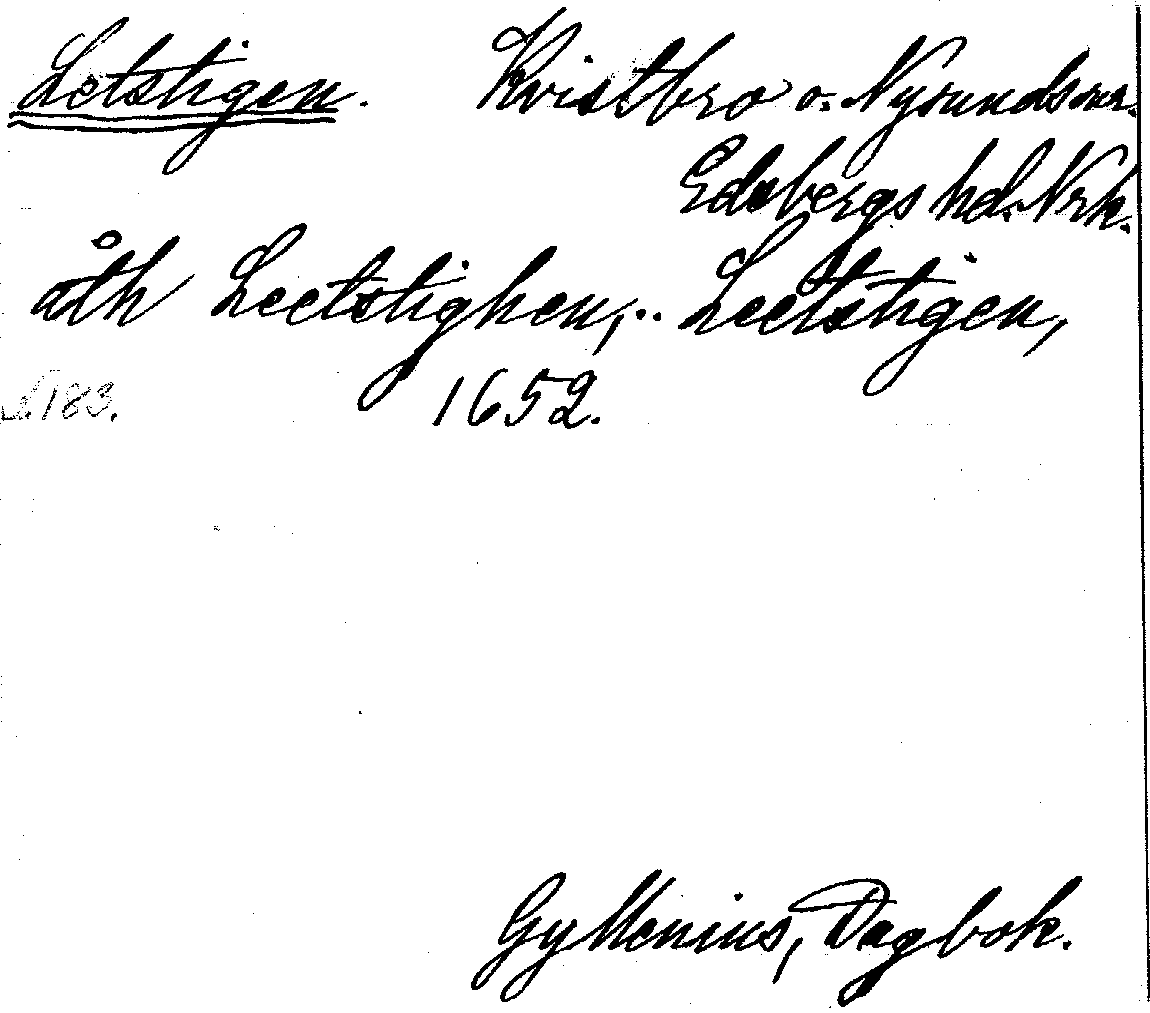 Letstigen. Kvistbro o. Nysunds snr.
Edsbergs hd. Nrk.
åth Leetstighen,.. Leetstigen,
1652.
183.
Gyllenius, Dagbok.